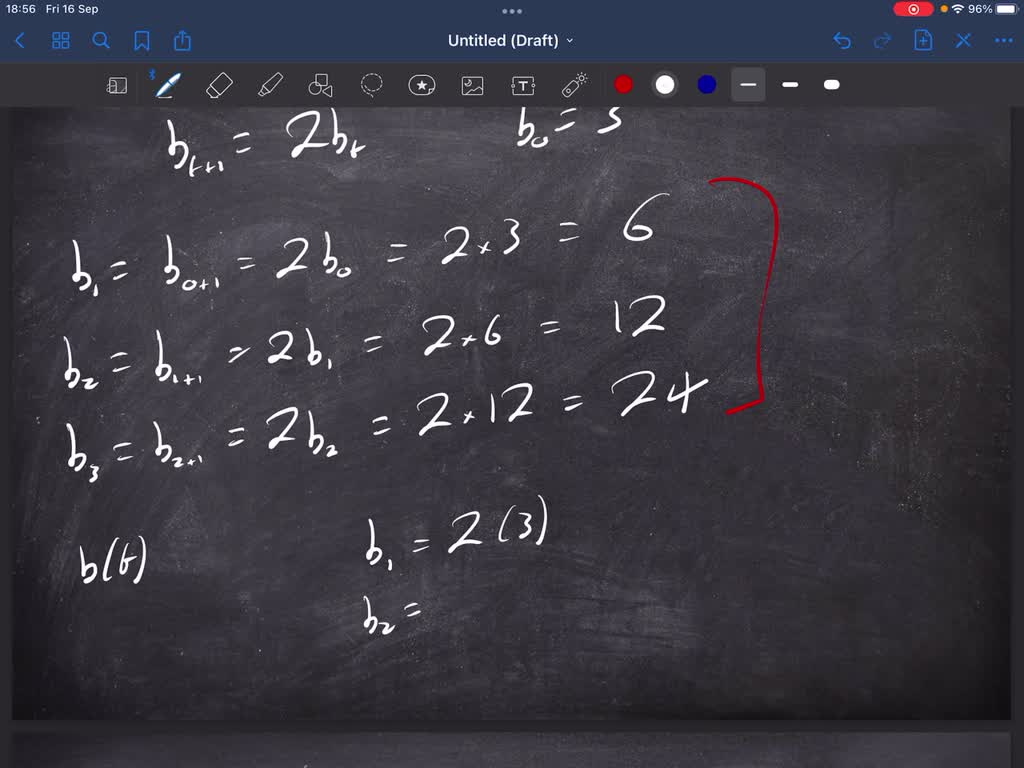 18:56 Fri 16 Sep 96%
Untitled (Draft)
b_{t+1} = 2b_t b_0 = 3
b_1 = b_{0+1} = 2b_0 = 2 × 3 = 6
b_2 = b_{1+1} = 2b_1 = 2 × 6 = 12
b_3 = b_{2+1} = 2b_2 = 2 × 12 = 24
b(t) b_1 = 2(3)
b_2 =